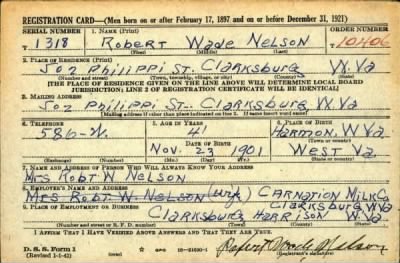 REGISTRATION CARD—(Men born on or after February 17, 1897 and on or before December 31, 1921)
SERIAL NUMBER 1. NAME (Print) ORDER NUMBER
T 1318 Robert Wade Nelson 10406
(First) (Middle) (Last)
2. PLACE OF RESIDENCE (Print)
502 Philippi St. Clarksburg W.Va
(Number and street) (Town, township, village, or city) (County) (State)
[THE PLACE OF RESIDENCE GIVEN ON THE LINE ABOVE WILL DETERMINE LOCAL BOARD
JURISDICTION; LINE 2 OF REGISTRATION CERTIFICATE WILL BE IDENTICAL]
3. MAILING ADDRESS
502 Philippi St. Clarksburg W.Va
[Mailing address if other than place indicated on line 2. If same insert word same]
4. TELEPHONE 5. AGE IN YEARS 6. PLACE OF BIRTH
586-W. 41 Harmon, W.Va
DATE OF BIRTH (Town or county)
Nov. 23 1901 West Va.
(Exchange) (Number) (Mo.) (Day) (Yr.) (State or country)
7. NAME AND ADDRESS OF PERSON WHO WILL ALWAYS KNOW YOUR ADDRESS
Mrs Robt W Nelson
8. EMPLOYER'S NAME AND ADDRESS
Mrs Robt W. Nelson (wife) Carnation Milk Co
Clarksburg W.Va
9. PLACE OF EMPLOYMENT OR BUSINESS
Clarksburg Harrison W.Va
(Number and street or R. F. D. number) (Town) (County) (State)
I AFFIRM THAT I HAVE VERIFIED ABOVE ANSWERS AND THAT THEY ARE TRUE.
D. S. S. Form 1
(Revised 1-1-42) GPO 16—21630-1 Robert Wade Nelson